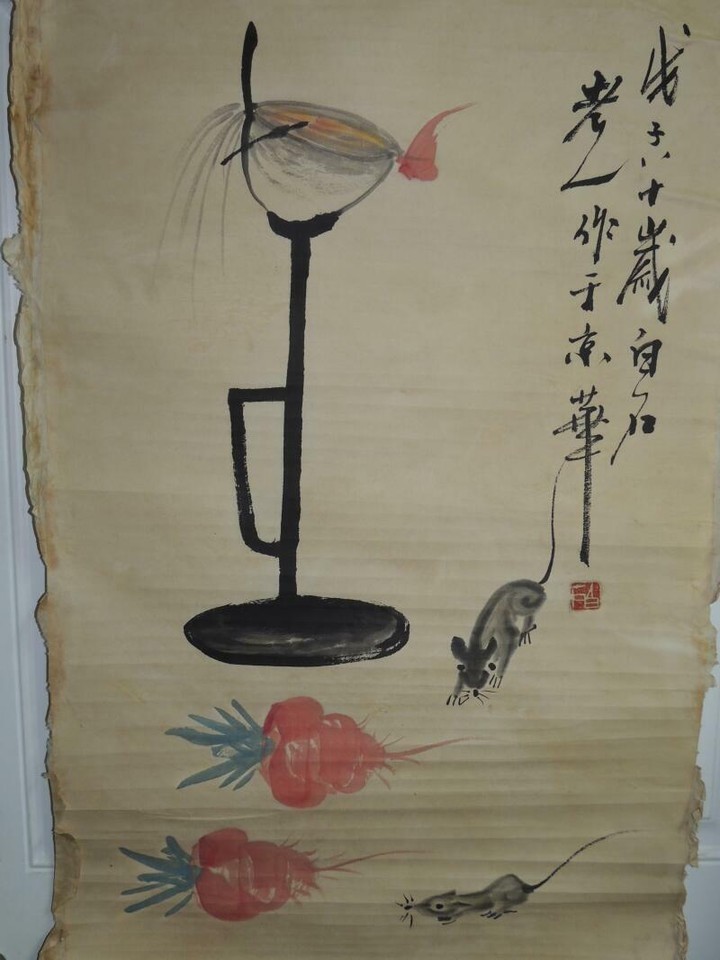 戊子八十歲白石
老人作于京華
白石